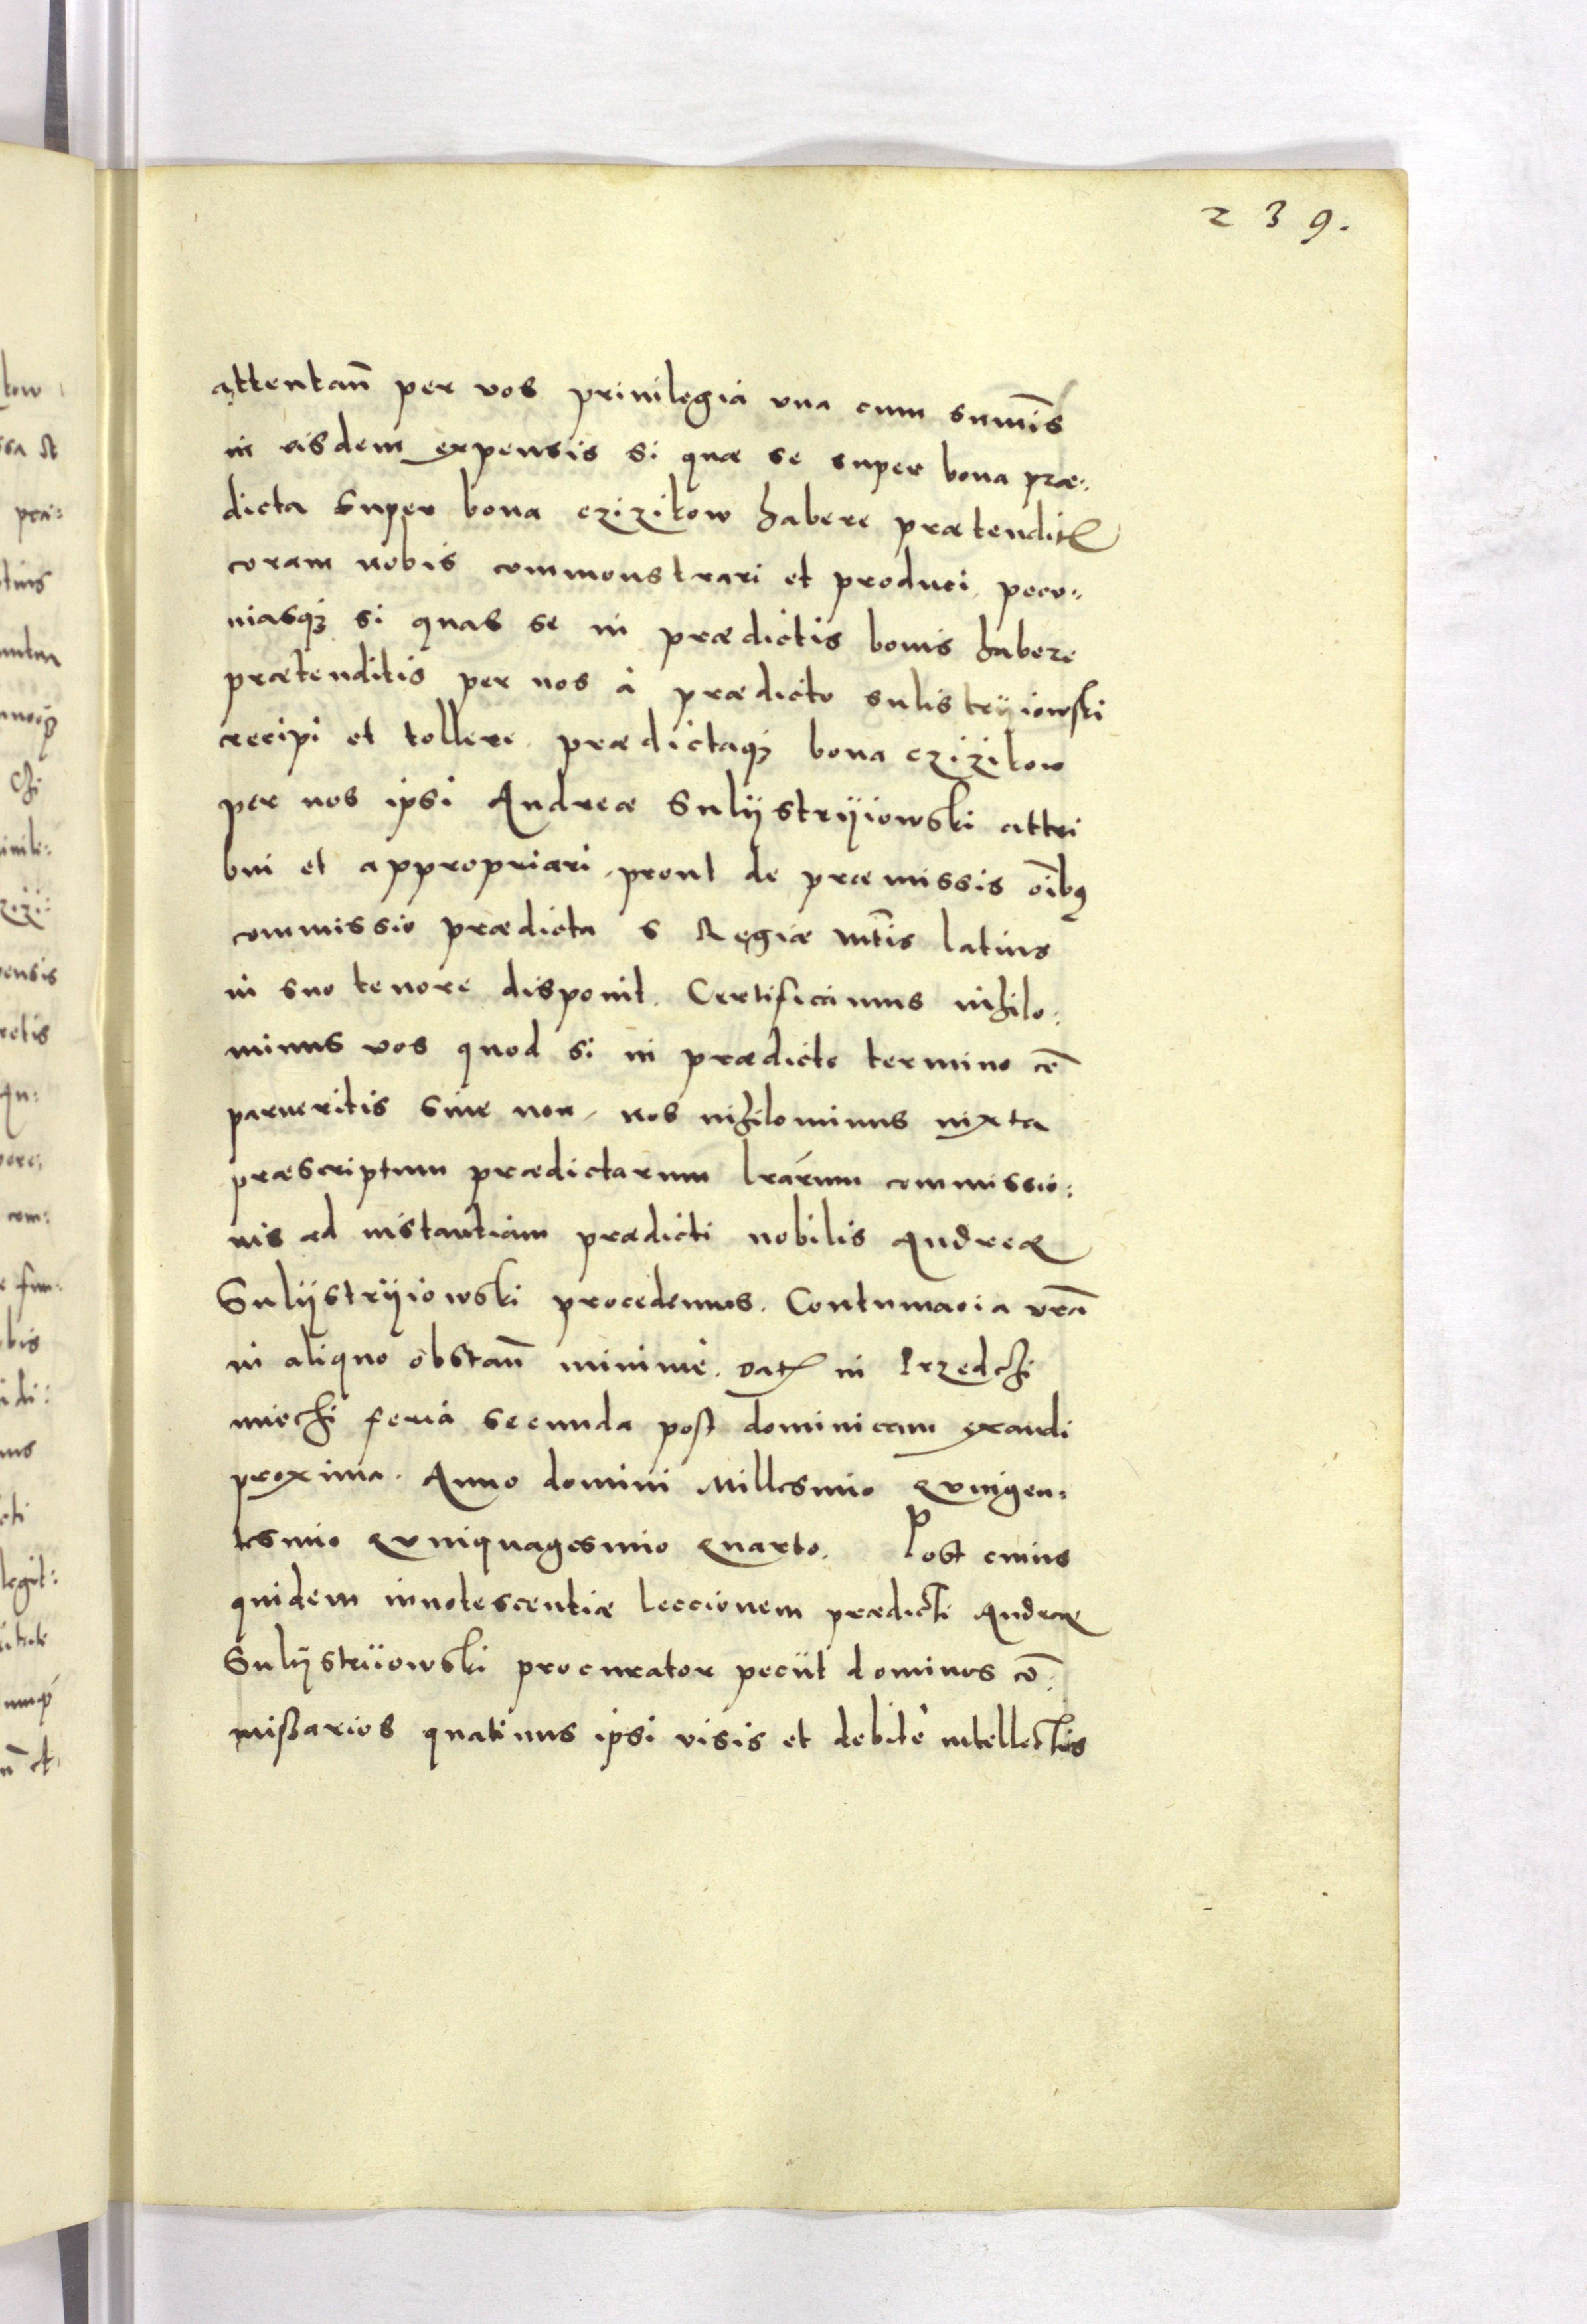 239.
attentañ per vos priuilegia vna cum sum̃is
in eisdem expensis si quæ se super bona præ:
dicta super bona czizikow habere prætendit
coram nobis commonstrari et produci, pecu:
niasq3 si quas se in prædictis bonis habere
prætenditis per nos à prædicto sulistryiowski
recipi et tollere. prædictaq3 bona czizikow
per nos ipsi Andreæ Sulÿstrÿiowski attri
bui et appropriari, prout de præmissis oı̃bq
commissio prædicta S Regiæ Mt̃is latius
in suo tenore disponit. Certificamus nihilo:
minus vos quod si in prædicto termino cõ
parueritis siue non, nos nihilominus iuxta
præscriptum prædictarum lrarum commissio:
nis ad instantiam prædicti nobilis Andreæ
Sulÿstrÿiowski procedemus. Contumacia vrã
in aliquo obstañ minimè. Dat in Przedchi
miechi feria secunda post dominicam exaudi
proxima. Anno domini Millesimo Quingen:
tesimo Quinquagesimo Quarto. Post cuius
quidem innotescentiæ leccionem prædicti Andreæ
Sulÿstriiowski procurator peciit dominos cõ:
mißarios quatinus ipsi visis et debitè intellectis